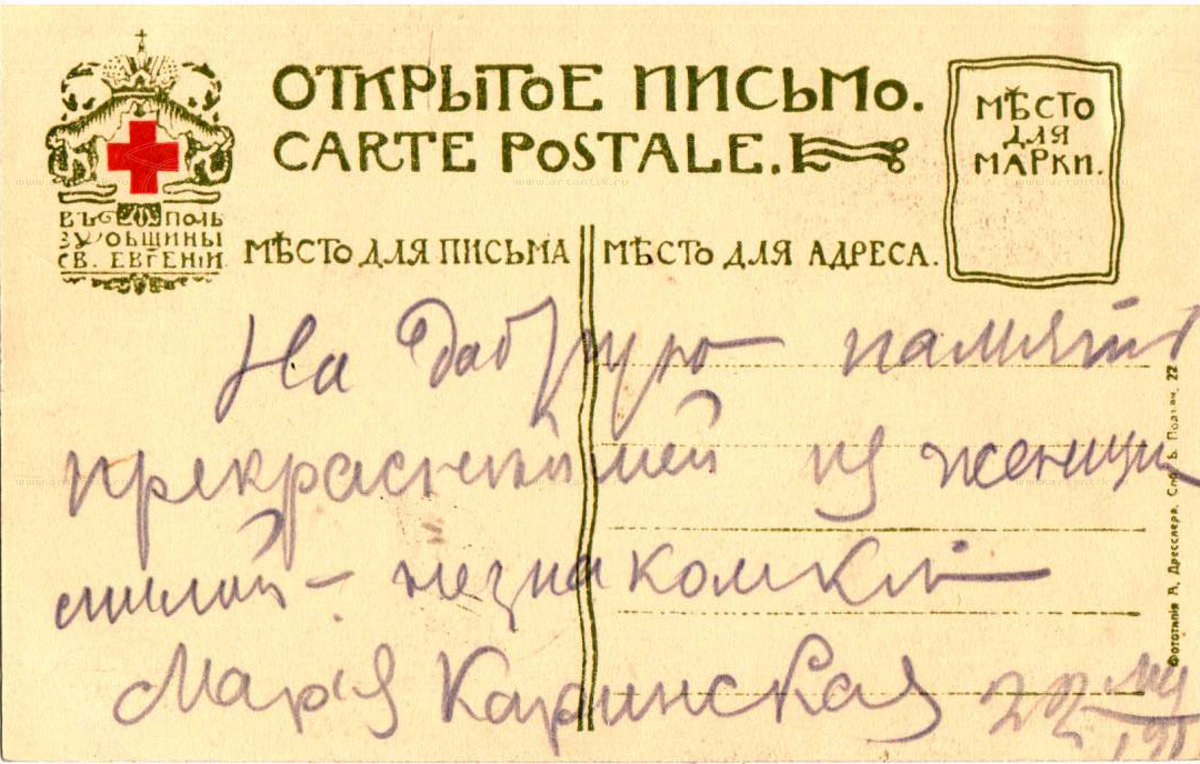 ОТКРЫТОЕ ПИСЬМО.
CARTE POSTALE.
МѢСТО
ДЛЯ
МАРКИ.
ВЪ ПОЛЬ
ЗУ ОБЩИНЫ
СВ. ЕВГЕНІИ.
МѢСТО ДЛЯ ПИСЬМА
МѢСТО ДЛЯ АДРЕСА.
На добрую память
прекраснѣйшей из женщин
милой – незнакомкѣ
Марія Каринская 22
Фототипія А. Дресслера, Спб. Б. Подъяч. 22
www.artantik.ru